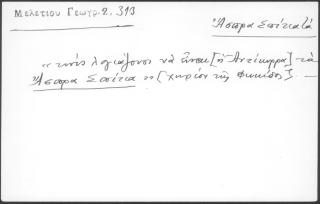 Μελετίου Γεωγρ. 2. 313
Ἄσπρα Σπίτια τὰ
" τινὲς λογιάζουσι νὰ εἶναι [ἡ Ἀντίκυρρα] τὰ
Ἄσπρα Σπίτια " [χωρίον τῆς Φωκίδος] —